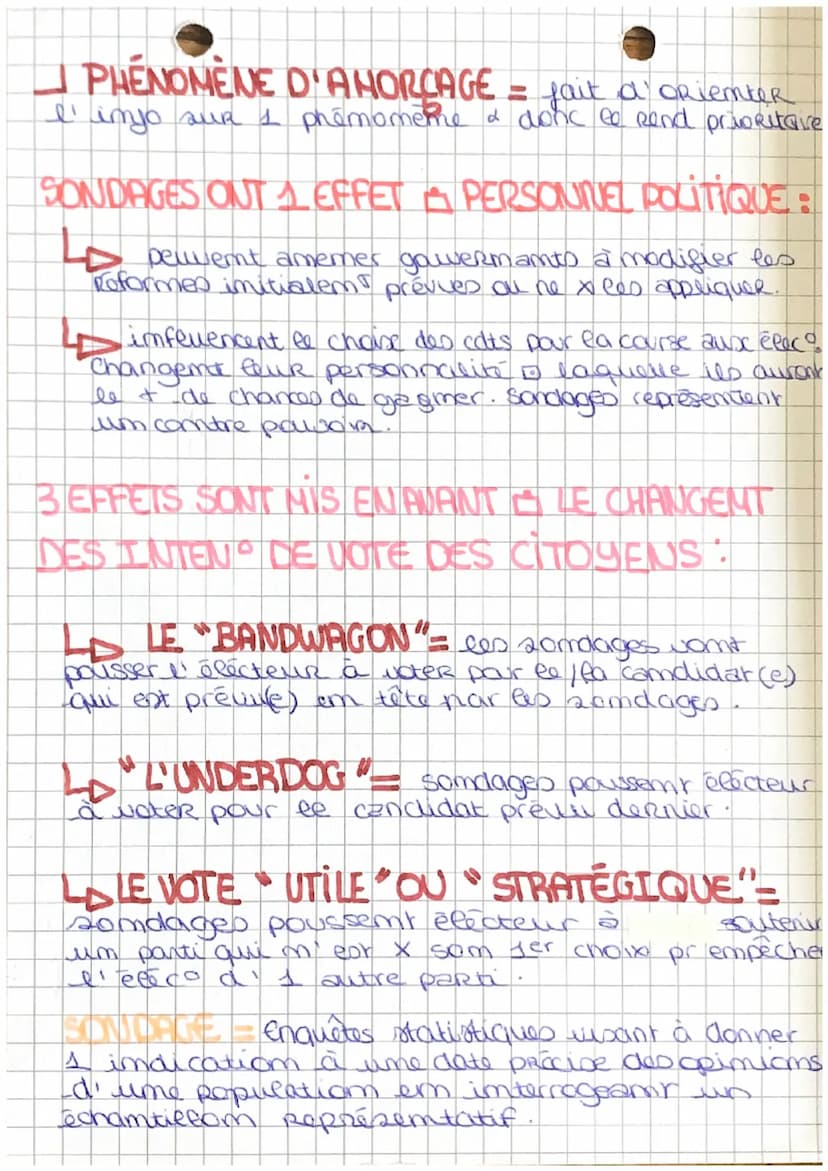 ↳ PHÉNOMÈNE D'AMORÇAGE = fait d'orienter
l'info sur 1 phénomène & donc le rend prioritaire
SONDAGES ONT 1 EFFET PERSONNEL POLITIQUE :
↳ peuvent amener gouvermants à modifier les
Réformes initialemt prévues ou ne x les appliquer.
↳ influencent le choix des cdts pour la course aux élec°.
Changemt leur personnalité laquelle ils auront
le + de chances de gagner. Sondages représentent
un contre pouvoir.
3 EFFETS SONT MIS EN AVANT LE CHANGEMT
DES INTEN° DE VOTE DES CITOYENS :
↳ LE "BANDWAGON" = les sondages vont
pousser l'élécteur à voter par le/la candidat(e)
qui est prévu(e) en tête par les sondages.
↳ "L'UNDERDOG" = sondages poussent élécteur
à voter pour le candidat prévu dernier.
↳ LE VOTE "UTILE" OU "STRATÉGIQUE" =
sondages poussent élécteur à soutenir
un parti qui n'est x son 1er choix pr empêcher
l'élec° d'1 autre parti.
SONDAGE = Enquêtes statistiques visant à donner
1 indication à une date précise des opinions
d'une population en interrogeant un
échantillon représentatif.